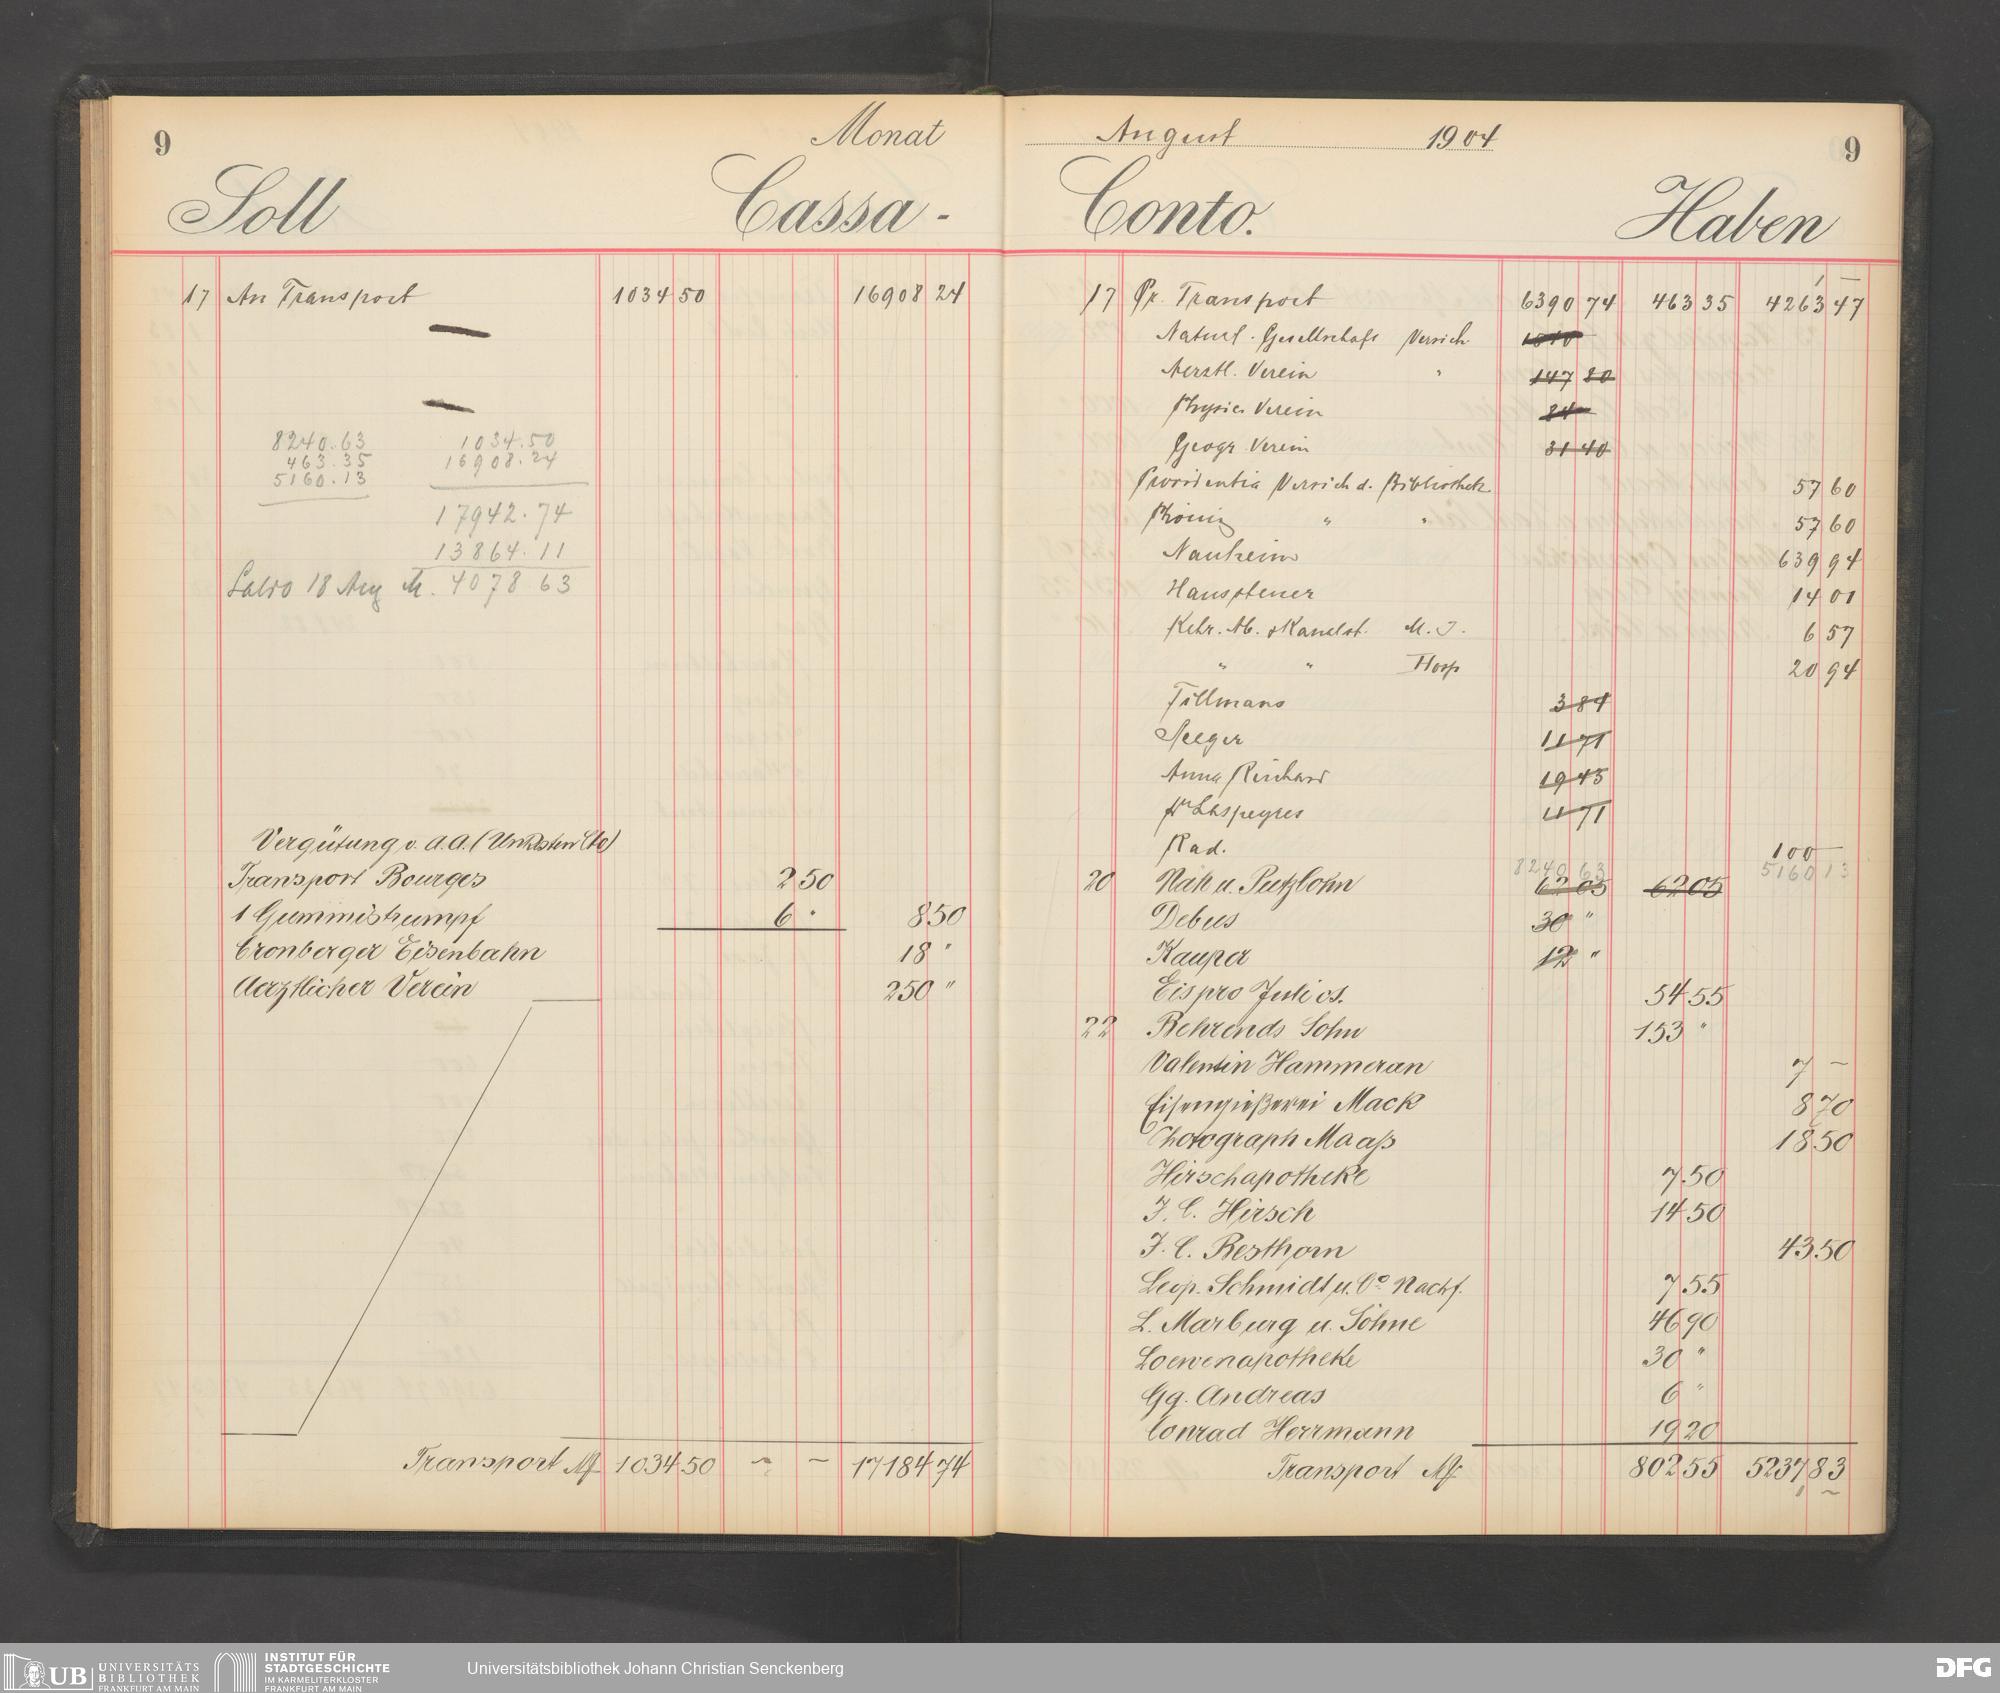 9 Monat
Soll Cassa -
17 An Transport 1034 50 16908 24
8240.63 1034.50
463.35 16908.24
5160.13
17942.74
13864.11
Saldo 18 Aug M. 4078 63
Vergütung v. a.a. (Unkosten Cto)
Transport Bourges 2 50
1 Gummistrumpf 6 " 8 50
Cronberger Eisenbahn 18 "
Aerztlicher Verein 250 "
Transport M 1034 50 ~ ~ 17184 74
August 1904 9
Conto. Haben
17 Pr. Transport 6390 74 463 35 4263 47
Naturf. Gesellschaft Versich.
Aerztl. Verein " 147 80
Physic. Verein 84
Geogr. Verein 31 40
Providentia Versich d. Bibliothek 57 60
Phönix " " 57 60
Nauheim 639 94
Haussteuer 14 01
Kehr. Ab. & Kanalst. M. I. 6 57
" " Hosp 20 94
Tillmans 3 84
Seeger 11 71
Anna Reichard 19 45
Fr. Laspeyres 11 71
Rad. 100 —
8240 63 5160 13
20 Näh u. Putzlohn 62 05 62 05
Debus 30 "
Kauper 12 "
Eis pro Juli cs. 54 55
22 Behrends Sohn 153 "
Valentin Hammeran 7 ~
Eisengießerei Mack 8 70
Photograph Maaß 18 50
Hirschapotheke 7 50
J. C. Hirsch 14 50
J. C. Besthorn 43 50
Leop. Schmidt u. Co Nachf. 7 55
L. Marburg u. Söhne 46 90
Loewenapotheke 30 "
Gg. Andreas 6 "
Conrad Herrmann 19 20
Transport M 802 55 5237 83
UB UNIVERSITÄTS
BIBLIOTHEK
FRANKFURT AM MAIN
INSTITUT FÜR
STADTGESCHICHTE
IM KARMELITERKLOSTER
FRANKFURT AM MAIN
Universitätsbibliothek Johann Christian Senckenberg
DFG